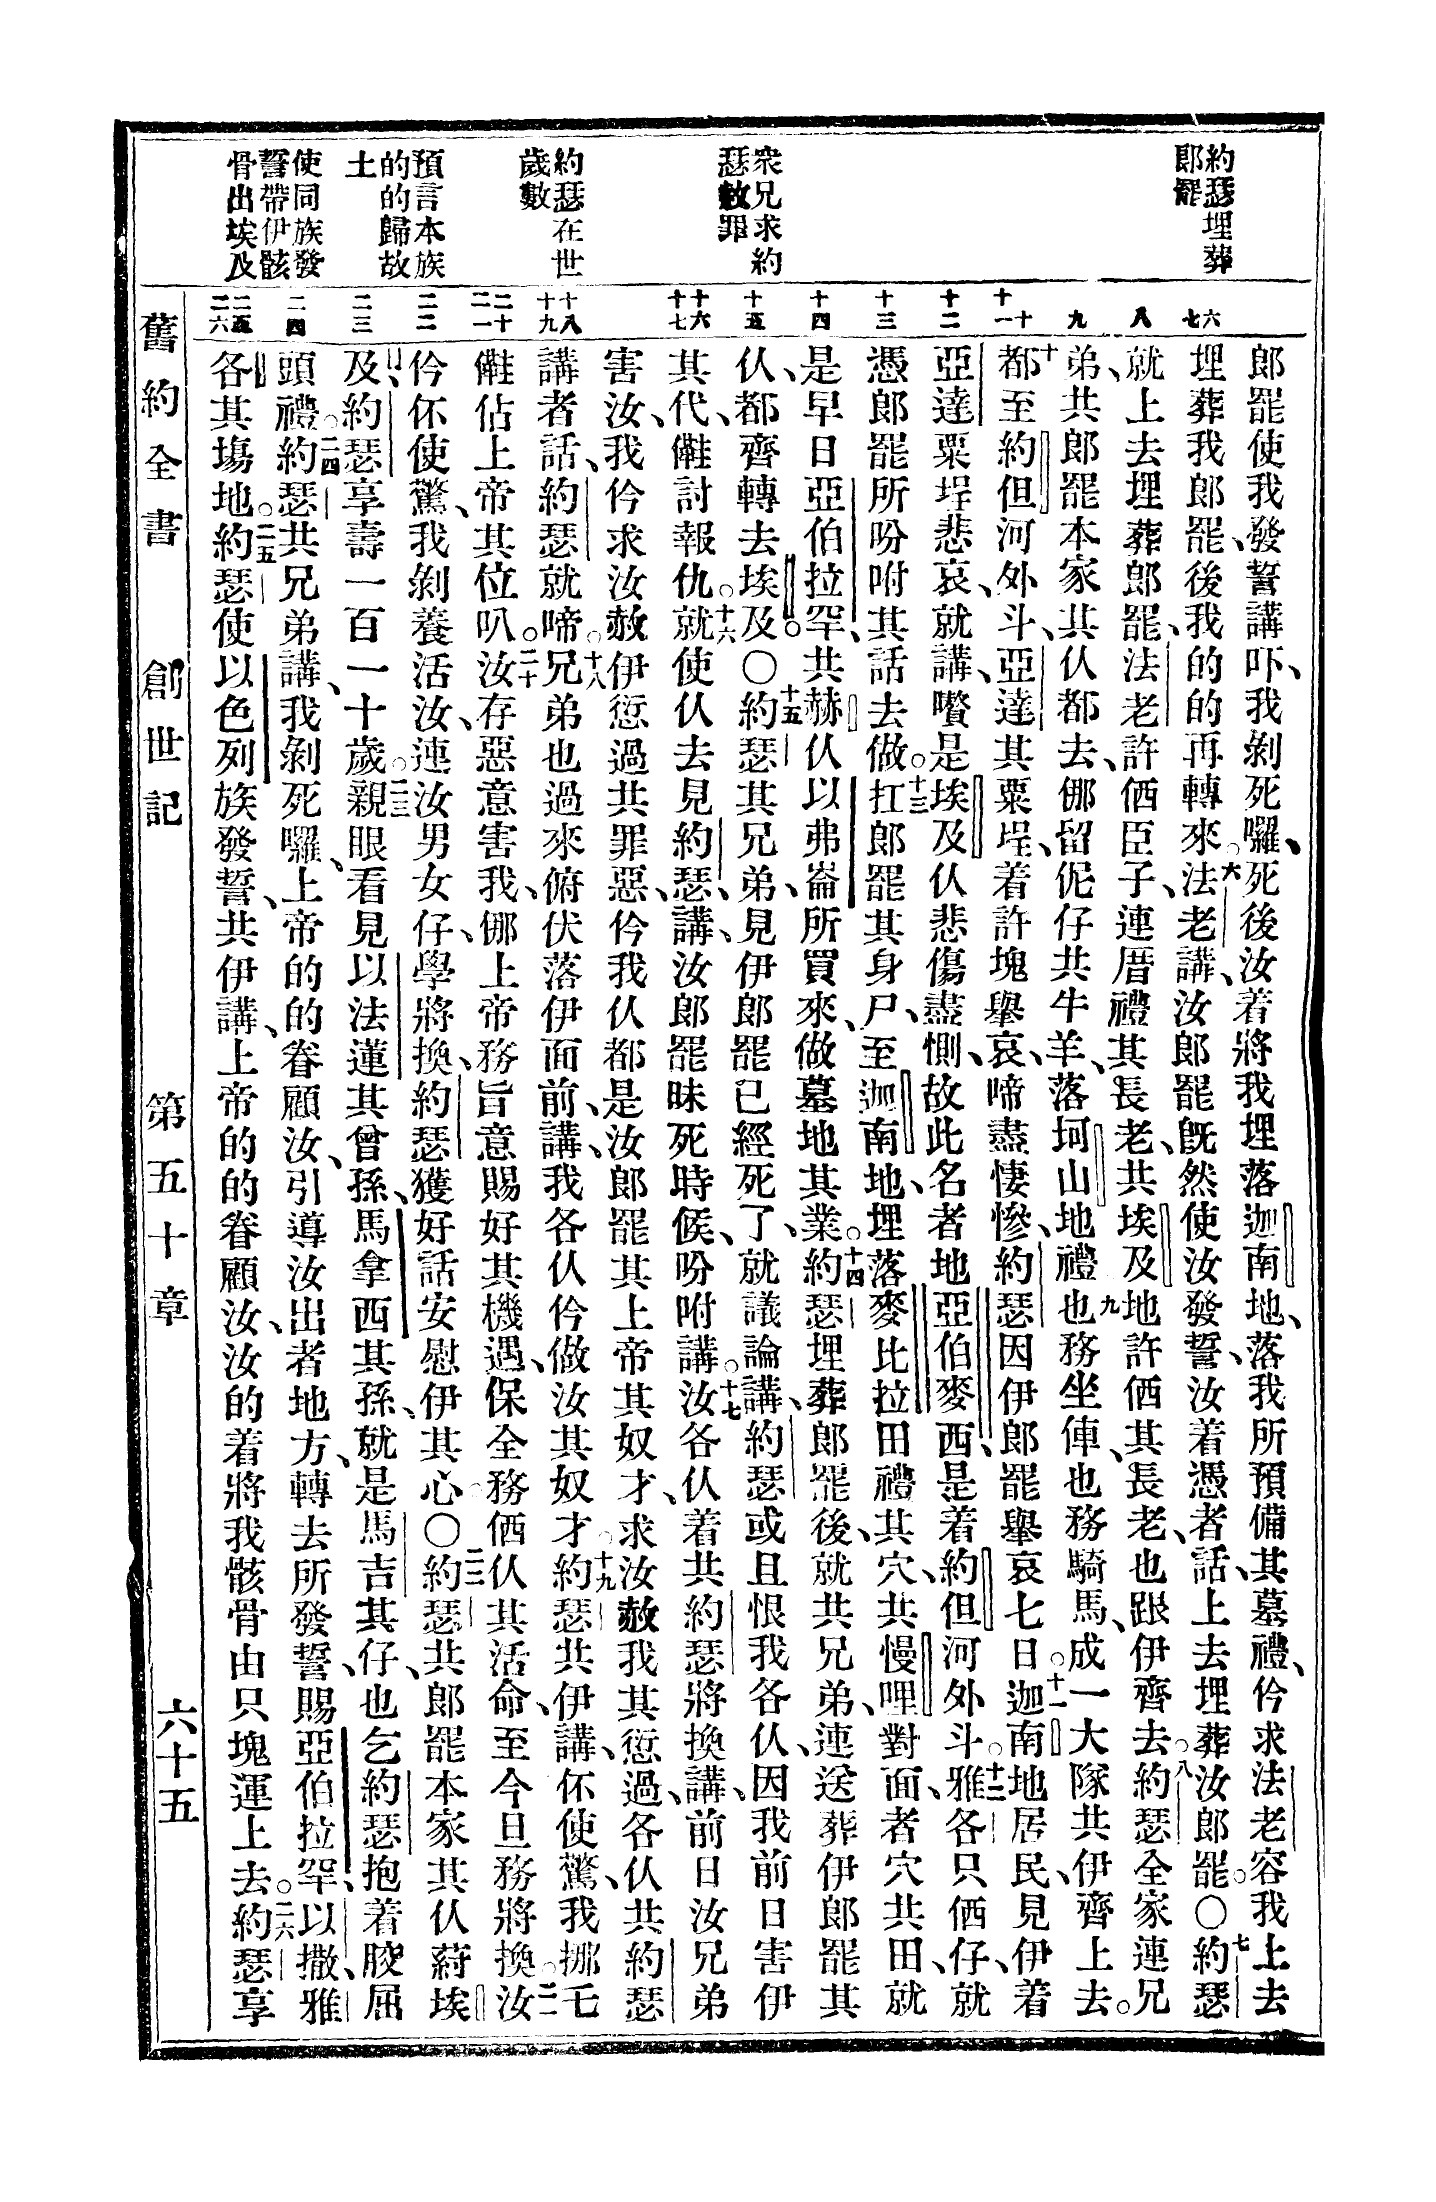 約瑟埋葬
郎罷
衆兄求約
瑟赦罪
約瑟在世
歲數
預言本族
的的歸故
土
使同族發
誓帶伊骸
骨出埃及
六
七
八
九
十
十一
十二
十三
十四
十五
十六
十七
十八
十九
二十
二一
二二
二三
二四
二五
二六
郎罷使我發誓講吓、我剝死囉、死後汝着將我埋落迦南地、落我所預備其墓禮、仱求法老容我上去
埋葬我郎罷、後我的的再轉來。六法老講、汝郎罷旣然使汝發誓、汝着憑者話、上去埋葬汝郎罷。〇七約瑟
就上去埋葬郎罷、法老許價臣子、連厝禮其長老、共埃及地許價其長老、也跟伊齊去。八約瑟全家連兄
弟、共郎罷本家、共仈都去、㑚留伲仔共牛羊、落坷山地禮。九也務坐俥、也務騎馬、成一大隊、共伊齊上去。
十都至約但河外斗、亞達其粟埕、着許塊舉哀、啼盡悽慘、約瑟因伊郎罷舉哀七日。十一迦南地居民、見伊着
亞達粟埕悲哀、就講、嚽是埃及仈悲傷盡惻、故此名者地亞伯麥西、是着約但河外斗。十二雅各只価仔、就
憑郎罷所吩咐其話去做。十三扛郎罷其身尸、至迦南地、埋落麥比拉田禮其穴、共慢哩對面者穴共田、就
是早日亞伯拉罕、共赫仈以弗崙所買來、做墓地其業。十四約瑟埋葬郎罷後、就共兄弟、連送葬伊郎罷其
仈、都齊轉去埃及。〇十五約瑟其兄弟、見伊郎罷已經死了、就議論講、約瑟或且恨我各仈、因我前日害伊
其代、𣍐討報仇。十六就使仈去見約瑟、講、汝郎罷昧死時候、吩咐講。十七汝各仈着共約瑟將換講、前日汝兄弟
害汝、我仱求汝赦伊愆過共罪惡、仱我仈都是汝郎罷其上帝其奴才、求汝赦我其愆過、各仈共約瑟
講者話、約瑟就啼。十八兄弟也過來俯伏落伊面前、講、我各仈仱做汝其奴才。十九約瑟共伊講、伓使驚、我挪乇
𣍐佔上帝其位叭。二十汝存惡意害我、㑚上帝務旨意賜好其機遇、保全務価仈其活命、至今旦務將換。二一汝
仱伓使驚、我剝養活汝、連汝男女仔、學將換、約瑟獲好話安慰伊其心。〇二二約瑟共郎罷本家其仈、蹛埃
及、約瑟享壽一百一十歲。二三親眼看見以法蓮其曾孫、馬拿西其孫、就是馬吉其仔、也乞約瑟抱着骹屈
頭禮。二四約瑟共兄弟講、我剝死囉、上帝的的眷顧汝、引導汝出者地方、轉去所發誓、賜亞伯拉罕、以撒、雅
各其塲地。二五約瑟使以色列族發誓、共伊講、上帝的的眷顧汝、汝的着將我骸骨由只塊運上去。二六約瑟享
舊約全書 創世記 第五十章 六十五